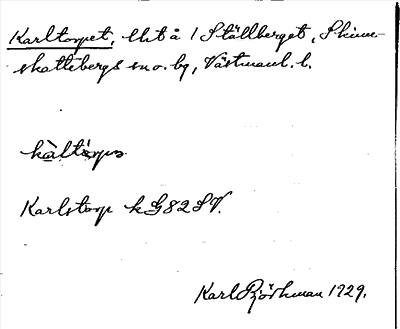 Karltorpet, Utå 1 Ställberget, Skinn-
skattebergs sn o. bg, Västmanl. l.
kàltórps
Karlstorp k G82SV.
Karl Björkman 1929.